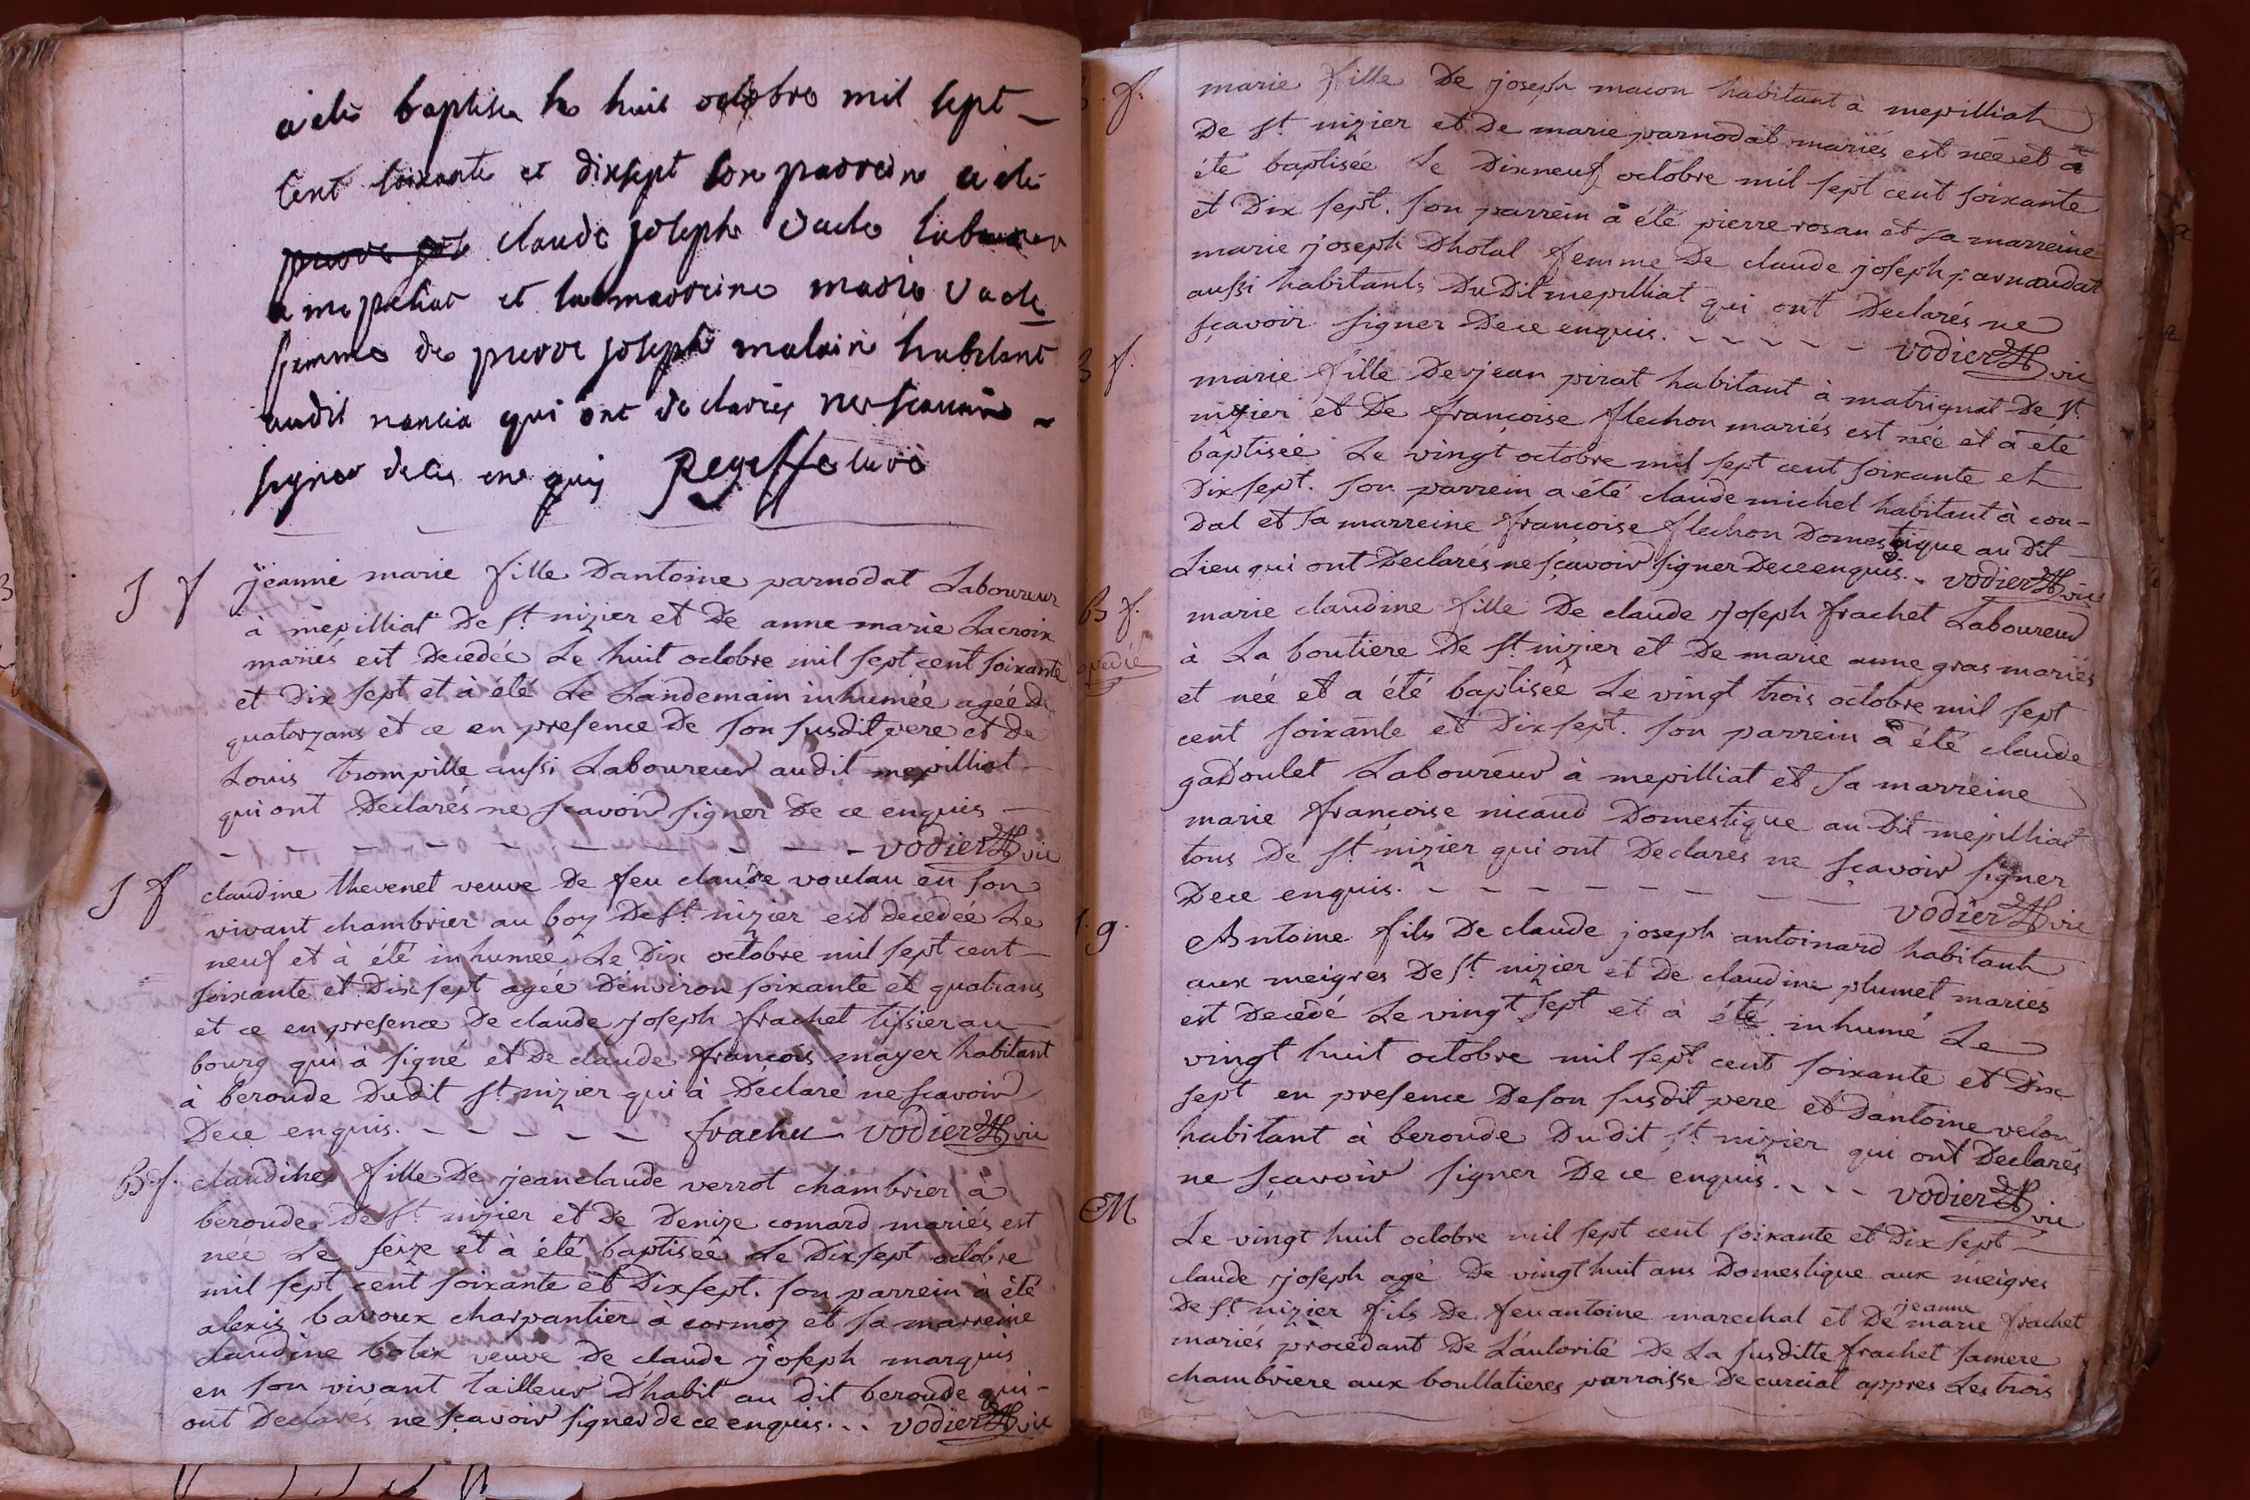 a été baptisé le huit octobre mil sept
cent soixante et dixsept son parrein a été
claude joseph vacle laboureur
a mepeliat et la marreine marie vacle
femme de pierre joseph malain habitant
audit nancia qui ont déclarés ne scavoir
signer de ce enquis Regeffe curé
J f
jeanne marie fille Dantoine parnodat Laboureur
à mepilliat De St nizier et De anne marie Lacroix
mariés est Decedée Le huit octobre mil sept cent soixante
et Dix sept et à été Le Landemain inhumée agée De
quatorzans et ce en presence De son susdit pere et de
Louis trompille aussi Laboureur audit mepilliat
qui ont Declarés ne scavoir signer De ce enquis
vodier vic
J f
claudine thevenet veuve De feu claude voulau en son
vivant chambrier au boz De St nizier est decedée Le
neuf et à été inhumée Le Dix octobre mil sept cent
soixante et Dix sept agée D'environ soixante et quatrans
et ce en presence De claude joseph frachet tissier au
bourg qui à signé et De claude françois mayer habitant
à beroude Dudit St nizier qui à Déclaré ne scavoir
Dece enquis. frachet vodier vic
B. f.
claudine fille De jean claude verrot chambrier à
beroude De St nizier et De Denize comard mariés est
née Le seize et à été baptisée Le Dixsept octobre
mil sept cent soixante et Dixsept. son parrein à été
alexis bavoux charpantier à cormoz et sa marreine
claudine botex veuve De claude joseph marquis
en son vivant tailleur D'habit au dit beroude qui
ont Declarés ne sçavoir signer de ce enquis. vodier vic
f.
marie fille De joseph macon habitant à mepilliat
De St nizier et De marie parnodat mariés est née et à
été baptisée Le Dixneuf octobre mil sept cent soixante
et Dix sept. son parrein à été pierre rosan et sa marreine
marie joseph Dhotal femme De claude joseph parnaudat
aussi habitants DuDit mepilliat qui ont Declarés ne
sçavoir signer Dece enquis. vodier vic
B f.
marie fille De jean pirat habitant à matrignat De St
nizier et De françoise flechon mariés est née et à été
baptisée Le vingt octobre mil sept cent soixante et
Dixsept. son parrein a été claude michel habitant à cou-
dal et sa marreine françoise flechon Domestique au Dit
Lieu qui ont Declarés ne sçavoir signer Dece enquis. vodier vic
B f.
marie claudine fille De claude joseph frachet Laboureur
à La boutiere De St nizier et De marie anne gras mariés
et née et a été baptisée Le vingt trois octobre mil sept
cent soixante et Dixsept. son parrein à été claude
gaDoulet Laboureur à mepilliat et sa marreine
marie françoise nicaud Domestique au Dit mepilliat
tous De St nizier qui ont Declares ne sçavoir signer
Dece enquis. vodier vic
g.
Antoine fils De claude joseph antoinard habitant
aux meigres De St nizier et De claudine plumet mariés
est Decédé Le vingt sept et à été inhumé Le
vingt huit octobre mil sept cent soixante et Dix
sept en presence Deson susdit pere et D'antoine velon
habitant à beroude Dudit St nizier qui ont Declarés
ne sçavoir signer De ce enquis. vodier vic
M
Le vingt huit octobre mil sept cent soixante et Dix sept
claude joseph agé De vingt huit ans Domestique aux meigres
De St nizier fils De feu antoine marechal et De jeanne marie frachet
mariés procédant De L'autorité De La susditte frachet samere
chambriere aux boullatieres parroisse De curciat appres Les trois